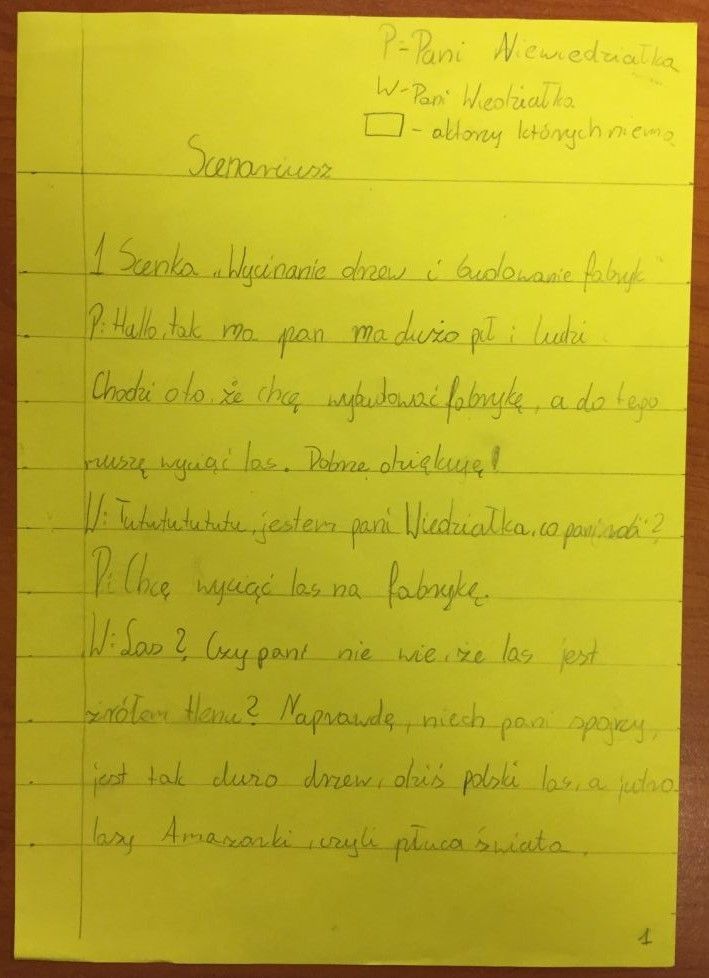 P-Pani Niewiedziałka
W-Pani Wiedziałka
- aktorzy których niema
Scenariusz
1 Scenka „Wycinanie drzew i budowanie fabryk"
P: Hallo, tak ma pan ma dużo pił i ludzi.
Chodzi oto, że chcę wybudować fabrykę, a do tego
muszę wyciąć las. Dobrze dziękuję!
W: Tutututututu, jestem pani Wiedziałka, co pani robi?
P: Chcę wyciąć las na fabrykę.
W: Las? Czy pani nie wie, że las jest
zrółem tlenu? Naprawdę, niech pani spojrzy,
jest tak dużo drzew, dziś polski las, a jutro
lasy Amazonki, czyli płuca świata.
1